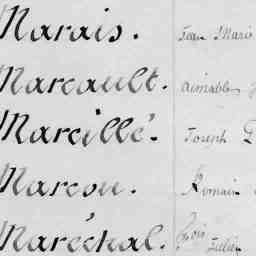 Marais. Jean Marie
Marcault. aimable
Marcillé. Joseph
Marcou. Romain
Maréchal. fois Julien